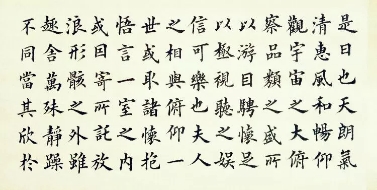 是日也天朗氣
清惠風和暢仰
觀宇宙之大俯
察品類之盛所
以游目騁懷足
以極視聽之娛
信可樂也夫人
之相與俯仰一
世或取諸懷抱
悟言一室之内
或因寄所託放
浪形骸之外雖
趣舍萬殊靜躁
不同當其欣於